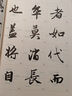 者如代而
卒莫消長
也盖將自